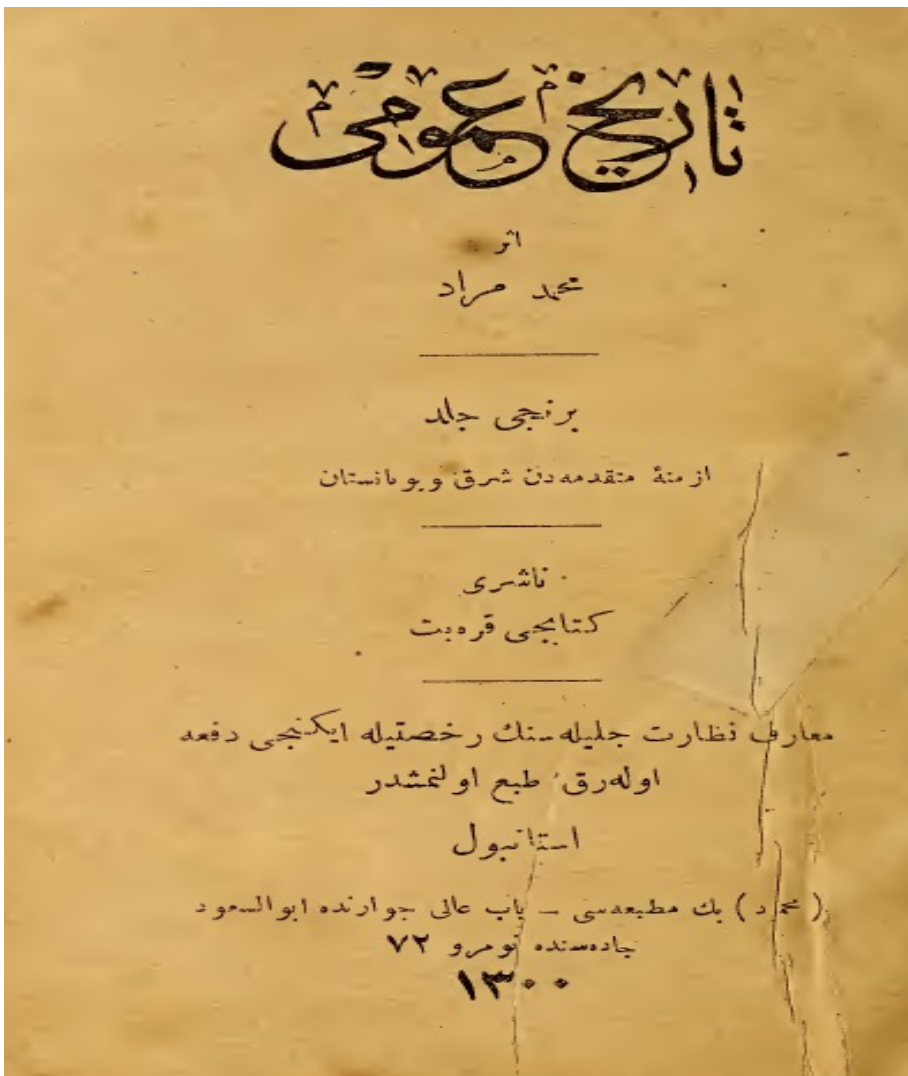 تاريخ عمومی
اثر
محمد مراد
برنجی جلد
ازمنهٔ متقدمه‌دن شرق و یونانستان
ناشری
کتابجی قره‌بت
معارف نظارت جلیله‌سنك رخصتیله ایکنجی دفعه
اوله‌رق طبع اولنمشدر
استانبول
(محمود) بك مطبعه‌سی – باب عالی جوارنده ابوالسعود
جاده‌سنده نومرو ٧٢
١٣٠٠